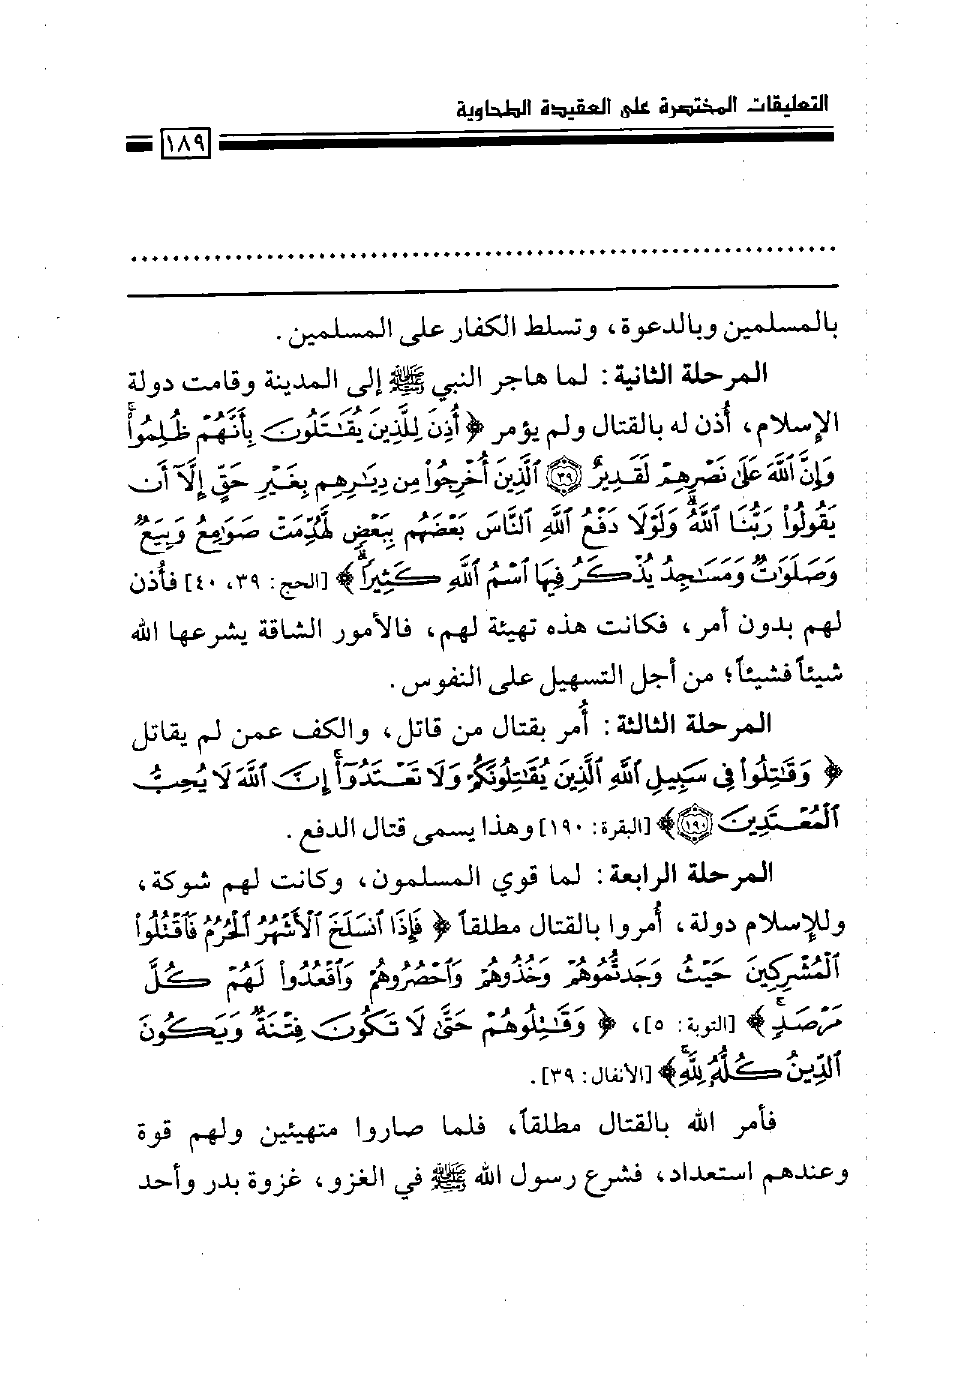 التعليقات المختصرة على العقيدة الطحاوية
١٨٩
بالمسلمين وبالدعوة، وتسلط الكفار على المسلمين.
المرحلة الثانية: لما هاجر النبي ﷺ إلى المدينة وقامت دولة
الإسلام، أُذن له بالقتال ولم يؤمر ﴿أُذِنَ لِلَّذِينَ يُقَٰتَلُونَ بِأَنَّهُمْ ظُلِمُوا۟ۚ
وَإِنَّ ٱللَّهَ عَلَىٰ نَصْرِهِمْ لَقَدِيرٌ ۝٣٩ ٱلَّذِينَ أُخْرِجُوا۟ مِن دِيَٰرِهِم بِغَيْرِ حَقٍّ إِلَّآ أَن
يَقُولُوا۟ رَبُّنَا ٱللَّهُۗ وَلَوْلَا دَفْعُ ٱللَّهِ ٱلنَّاسَ بَعْضَهُم بِبَعْضٍ لَّهُدِّمَتْ صَوَٰمِعُ وَبِيَعٌ
وَصَلَوَٰتٌ وَمَسَٰجِدُ يُذْكَرُ فِيهَا ٱسْمُ ٱللَّهِ كَثِيرًاۗ﴾ [الحج: ٣٩، ٤٠] فأُذن
لهم بدون أمر، فكانت هذه تهيئة لهم، فالأمور الشاقة يشرعها الله
شيئاً فشيئاً؛ من أجل التسهيل على النفوس.
المرحلة الثالثة: أُمر بقتال من قاتل، والكف عمن لم يقاتل
﴿وَقَٰتِلُوا۟ فِى سَبِيلِ ٱللَّهِ ٱلَّذِينَ يُقَٰتِلُونَكُمْ وَلَا تَعْتَدُوٓا۟ۚ إِنَّ ٱللَّهَ لَا يُحِبُّ
ٱلْمُعْتَدِينَ ۝١٩٠﴾ [البقرة: ١٩٠] وهذا يسمى قتال الدفع.
المرحلة الرابعة: لما قوي المسلمون، وكانت لهم شوكة،
وللإسلام دولة، أُمروا بالقتال مطلقاً ﴿فَإِذَا ٱنسَلَخَ ٱلْأَشْهُرُ ٱلْحُرُمُ فَٱقْتُلُوا۟
ٱلْمُشْرِكِينَ حَيْثُ وَجَدتُّمُوهُمْ وَخُذُوهُمْ وَٱحْصُرُوهُمْ وَٱقْعُدُوا۟ لَهُمْ كُلَّ
مَرْصَدٍۚ﴾ [التوبة: ٥]، ﴿وَقَٰتِلُوهُمْ حَتَّىٰ لَا تَكُونَ فِتْنَةٌ وَيَكُونَ
ٱلدِّينُ كُلُّهُۥ لِلَّهِۚ﴾ [الأنفال: ٣٩].
فأمر الله بالقتال مطلقاً، فلما صاروا متهيئين ولهم قوة
وعندهم استعداد، فشرع رسول الله ﷺ في الغزو، غزوة بدر وأحد